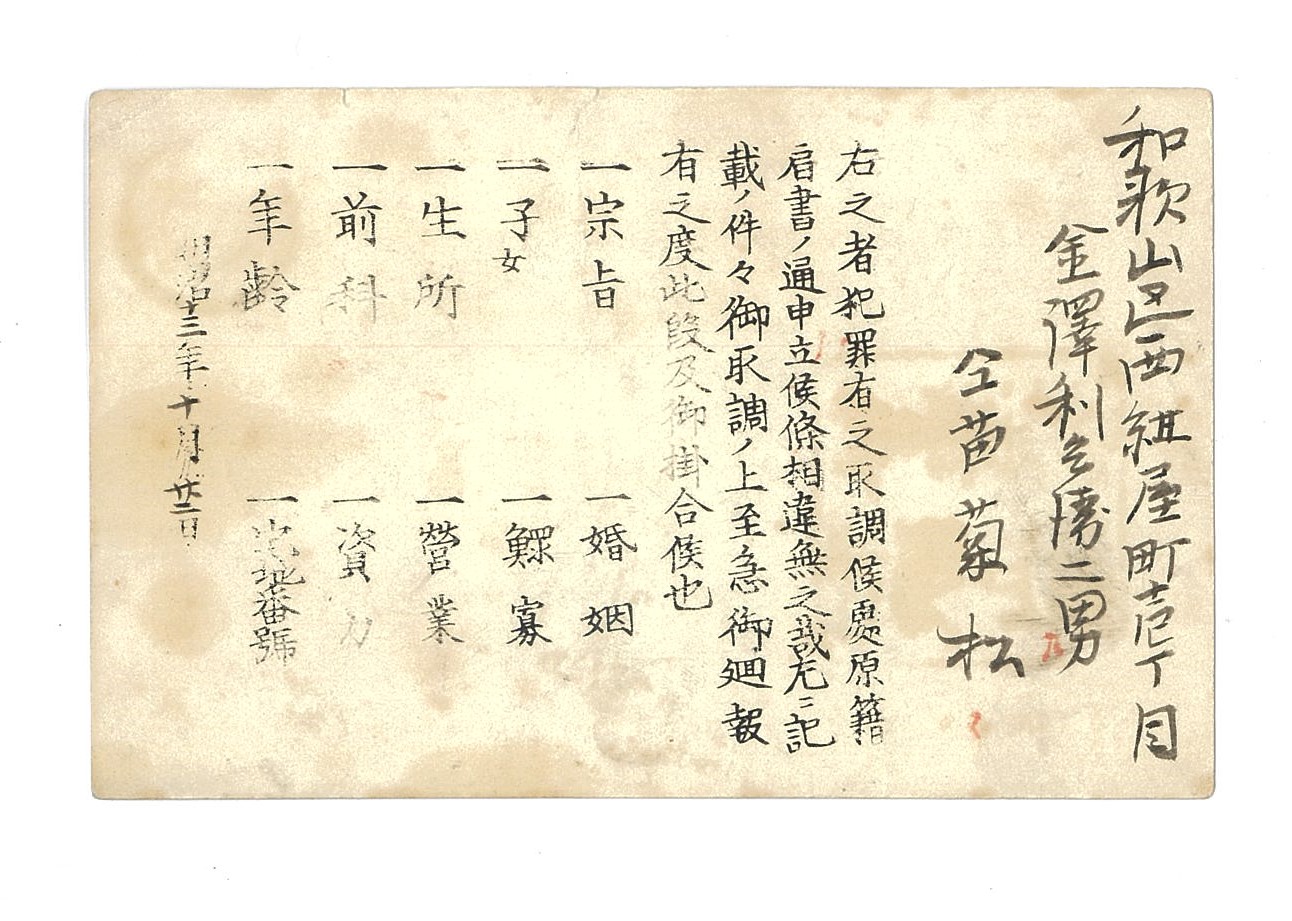 和歌山区西紺屋町壱丁目
金澤利兵衛二男
仝苗菊松
右之者犯罪有之取調候處原籍
肩書ノ通申立候條相違無之哉左ニ記
載ノ件々御取調ノ上至急御廻報
有之度此段及御掛合候也
一宗旨 一婚姻
一子女 一鰥寡
一生所 一營業
一前科 一資力
一年齢 一宅地番號
明治十三年十月廿二日